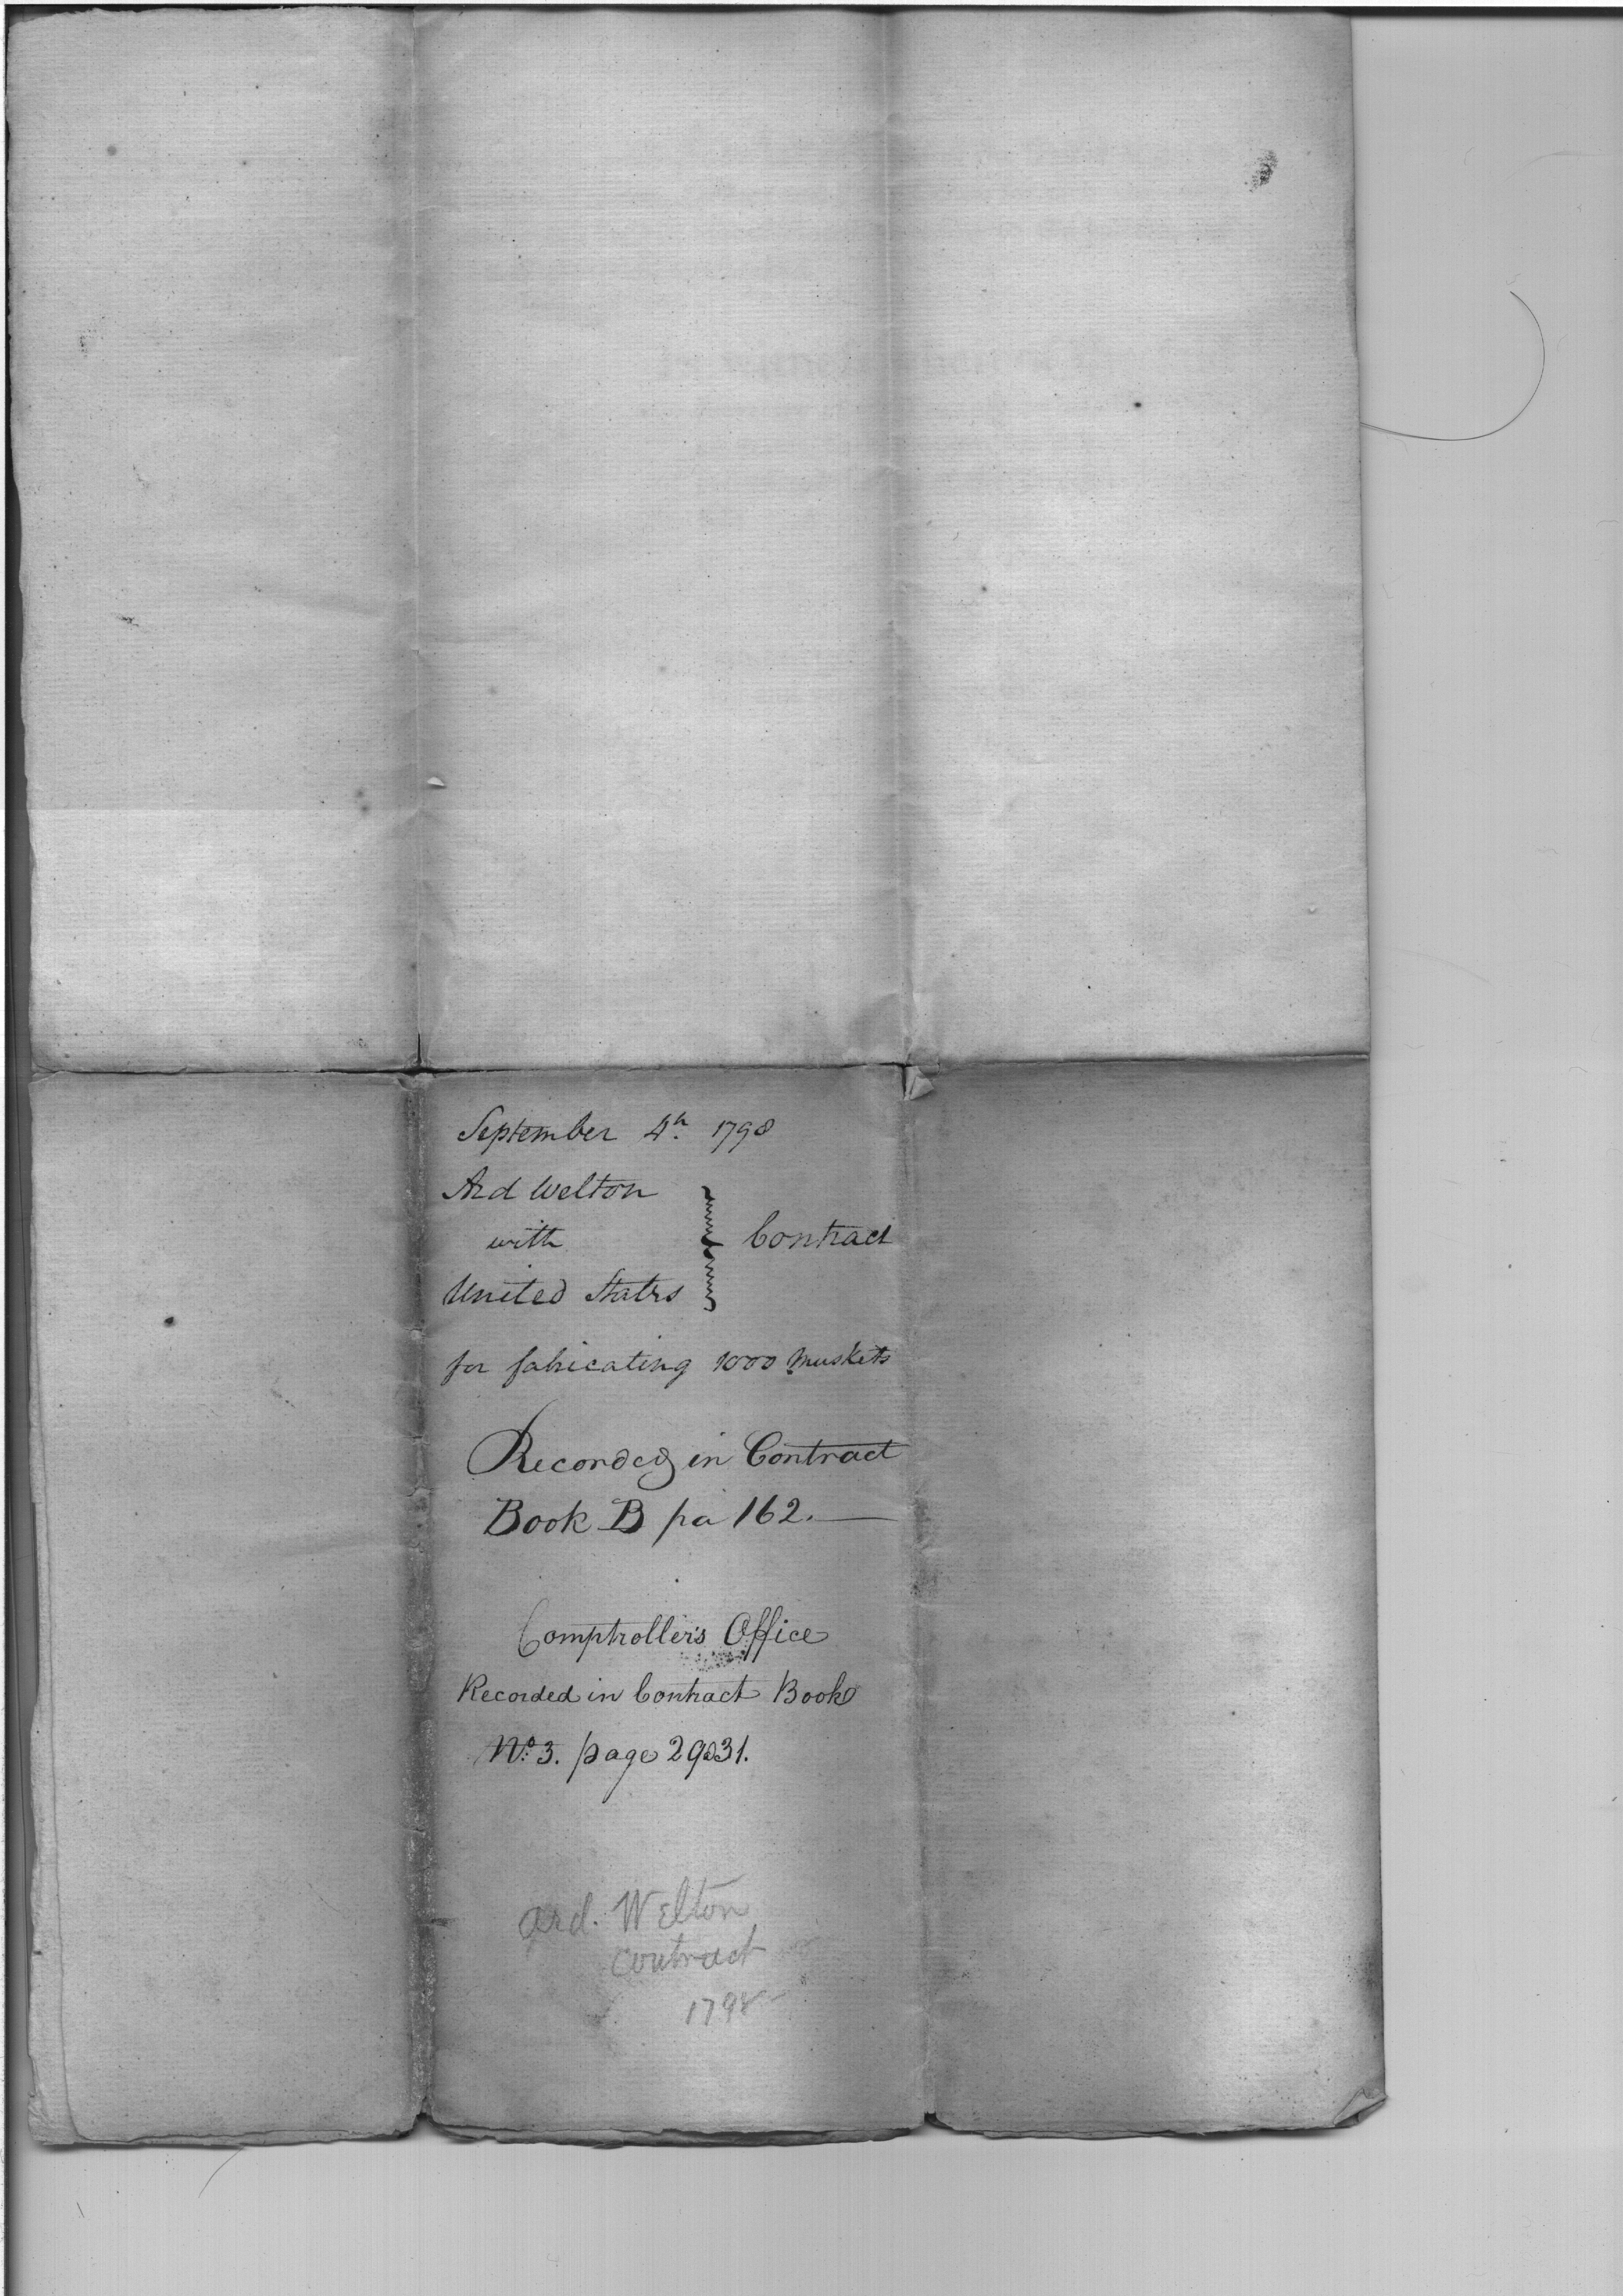 September 4th 1798
Ard Welton
with } Contract
United States
for fabricating 1000 muskets
Recorded in Contract
Book B pa 162.
Comptroller's Office
Recorded in Contract Book
No. 3. page 29 31.
Ard. Welton
contract
1798